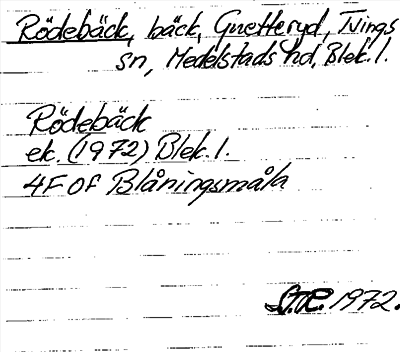 Rödebäck, bäck, Gnetteryd, Tvings
sn, Medelstads hd, Blek. l.
Rödebäck
ek. (1972) Blek. l.
4F 0f Blåningsmåla
1972.